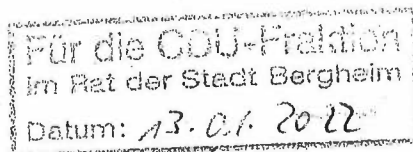 Für die CDU-Fraktion
im Rat der Stadt Bergheim
Datum: 13.01.2022